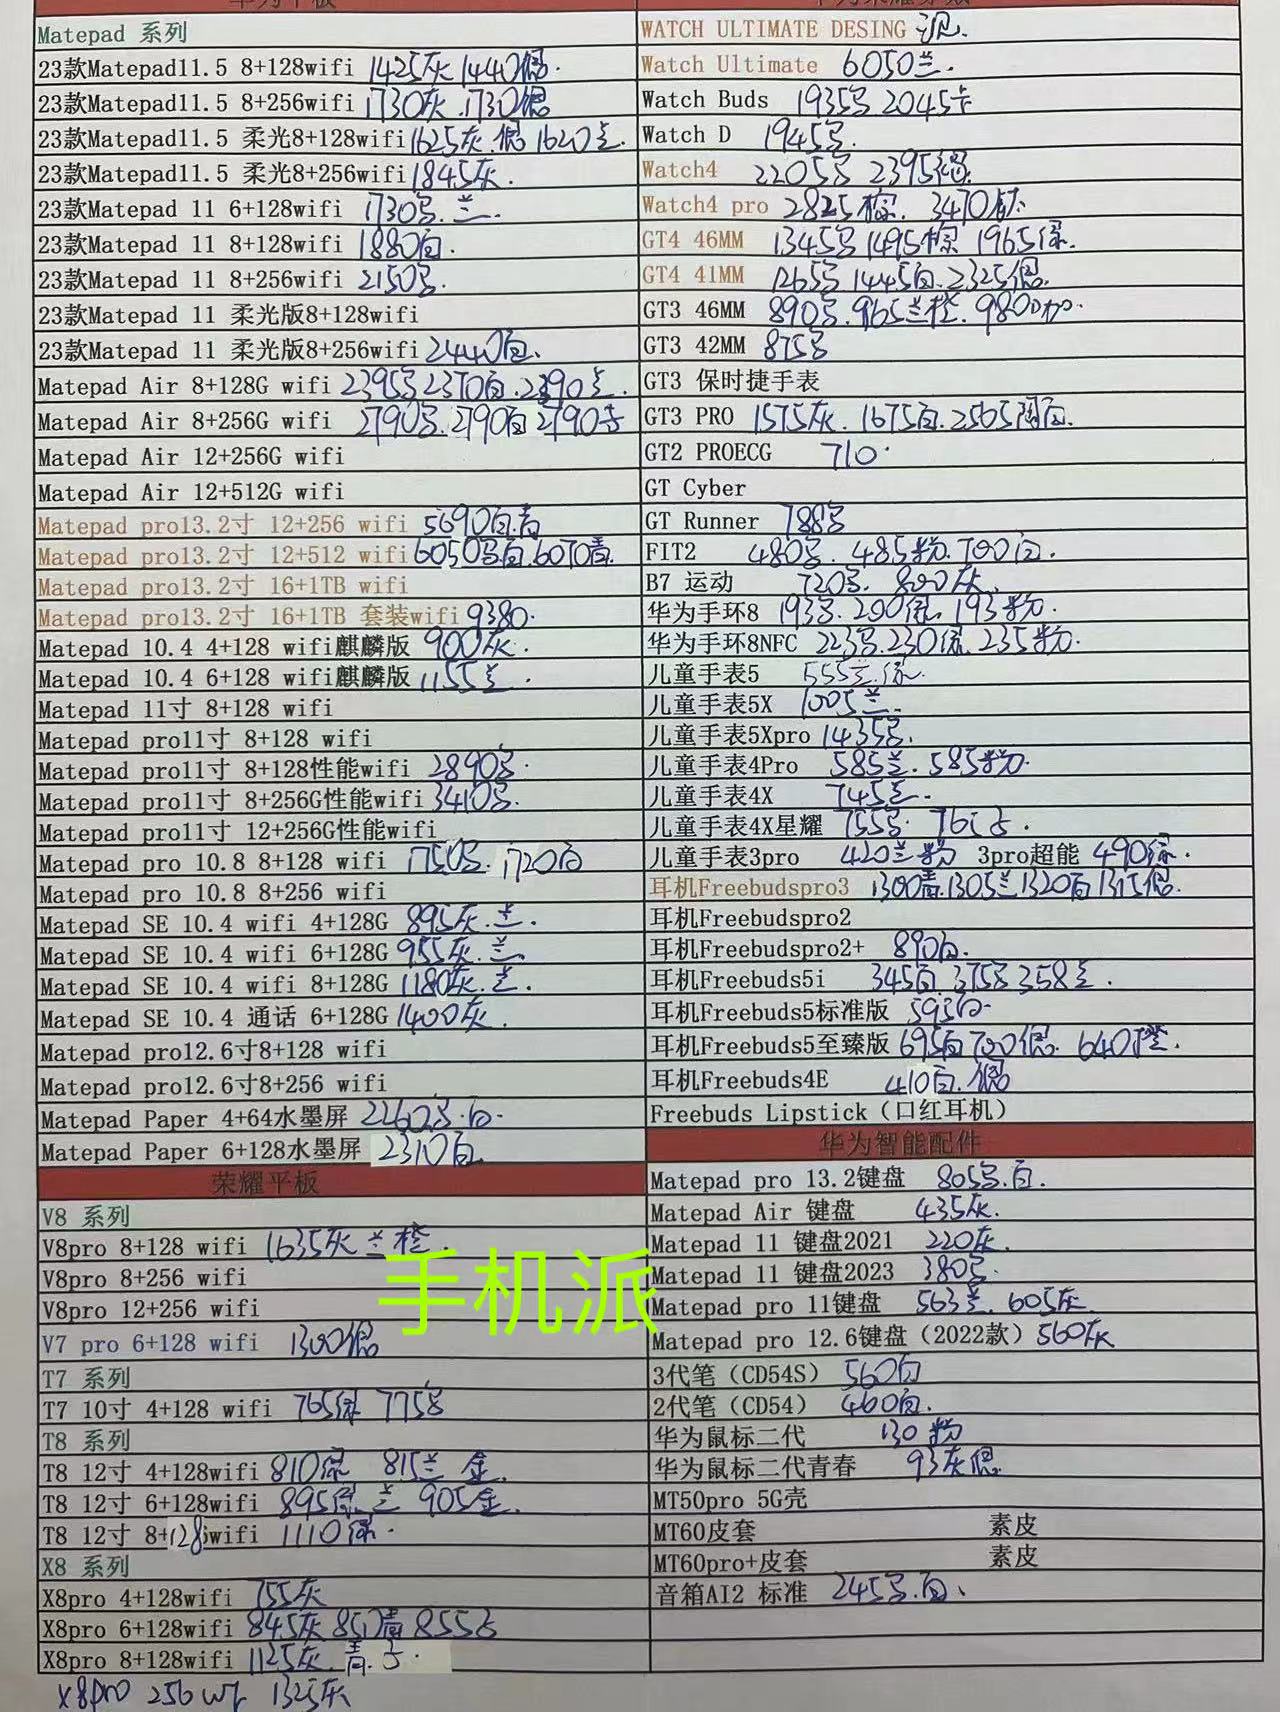 华为平板
Matepad 系列
23款Matepad11.5 8+128wifi 1425灰 1440
23款Matepad11.5 8+256wifi 1730灰 1730
23款Matepad11.5 柔光8+128wifi 1625灰 1620
23款Matepad11.5 柔光8+256wifi 1845灰
23款Matepad 11 6+128wifi 1730 兰
23款Matepad 11 8+128wifi 1880白
23款Matepad 11 8+256wifi 2150
23款Matepad 11 柔光版8+128wifi
23款Matepad 11 柔光版8+256wifi 2440白
Matepad Air 8+128G wifi 2395 2370白
Matepad Air 8+256G wifi 2790 2790白 2790
Matepad Air 12+256G wifi
Matepad Air 12+512G wifi
Matepad pro13.2寸 12+256 wifi 5690白.青
Matepad pro13.2寸 12+512 wifi 6050 白 6070青
Matepad pro13.2寸 16+1TB wifi
Matepad pro13.2寸 16+1TB 套装wifi 9380
Matepad 10.4 4+128 wifi麒麟版 900灰
Matepad 10.4 6+128 wifi麒麟版 1155兰
Matepad 11寸 8+128 wifi
Matepad pro11寸 8+128 wifi
Matepad pro11寸 8+128性能wifi 2890
Matepad pro11寸 8+256G性能wifi 3410
Matepad pro11寸 12+256G性能wifi
Matepad pro 10.8 8+128 wifi 1750 1720白
Matepad pro 10.8 8+256 wifi
Matepad SE 10.4 wifi 4+128G 895灰.兰
Matepad SE 10.4 wifi 6+128G 955灰.兰
Matepad SE 10.4 wifi 8+128G 1180灰.兰
Matepad SE 10.4 通话 6+128G 1400灰
Matepad pro12.6寸8+128 wifi
Matepad pro12.6寸8+256 wifi
Matepad Paper 4+64水墨屏 2260 白
Matepad Paper 6+128水墨屏 2310白
荣耀平板
V8 系列
V8pro 8+128 wifi 1635灰 兰 橙
V8pro 8+256 wifi
V8pro 12+256 wifi
V7 pro 6+128 wifi 1300
T7 系列
T7 10寸 4+128 wifi 765绿 775
T8 系列
T8 12寸 4+128wifi 810绿 815兰 金
T8 12寸 6+128wifi 895绿.兰 905金
T8 12寸 8+128wifi 1110绿
X8 系列
X8pro 4+128wifi 755灰
X8pro 6+128wifi 845灰 850青 855
X8pro 8+128wifi 1125灰.青
X8pro 256 wifi 1325灰
手机派
WATCH ULTIMATE DESING
Watch Ultimate 6050兰
Watch Buds 1935 2045卡
Watch D 1945
Watch4 2205 2395
Watch4 pro 2825棕 3470钛
GT4 46MM 1345 1495棕 1965绿
GT4 41MM 1265 1445白 2325
GT3 46MM 890 965兰橙 980
GT3 42MM 875
GT3 保时捷手表
GT3 PRO 1575灰 1675白 2565陶白
GT2 PROECG 710
GT Cyber
GT Runner 788
FIT2 480 485粉 700白
B7 运动 720 800灰
华为手环8 193 200绿 193粉
华为手环8NFC 223 230绿 235粉
儿童手表5 555兰.绿
儿童手表5X 1005兰
儿童手表5Xpro 1435
儿童手表4Pro 585兰 585粉
儿童手表4X 745兰
儿童手表4X星耀 755
儿童手表3pro 420兰粉 3pro超能 490绿
耳机Freebudspro3 1300青 1305兰 1320白 1315
耳机Freebudspro2
耳机Freebudspro2+ 890白
耳机Freebuds5i 345白 375 358
耳机Freebuds5标准版 595白
耳机Freebuds5至臻版 695白 700 640橙
耳机Freebuds4E 410白
Freebuds Lipstick（口红耳机）
华为智能配件
Matepad pro 13.2键盘 805 白
Matepad Air 键盘 435灰
Matepad 11 键盘2021 220灰
Matepad 11 键盘2023 380
Matepad pro 11键盘 563兰 605灰
Matepad pro 12.6键盘（2022款）560灰
3代笔（CD54S） 560白
2代笔（CD54） 460白
华为鼠标二代 130 粉
华为鼠标二代青春 93灰
MT50pro 5G壳
MT60皮套 素皮
MT60pro+皮套 素皮
音箱AI2 标准 245 白